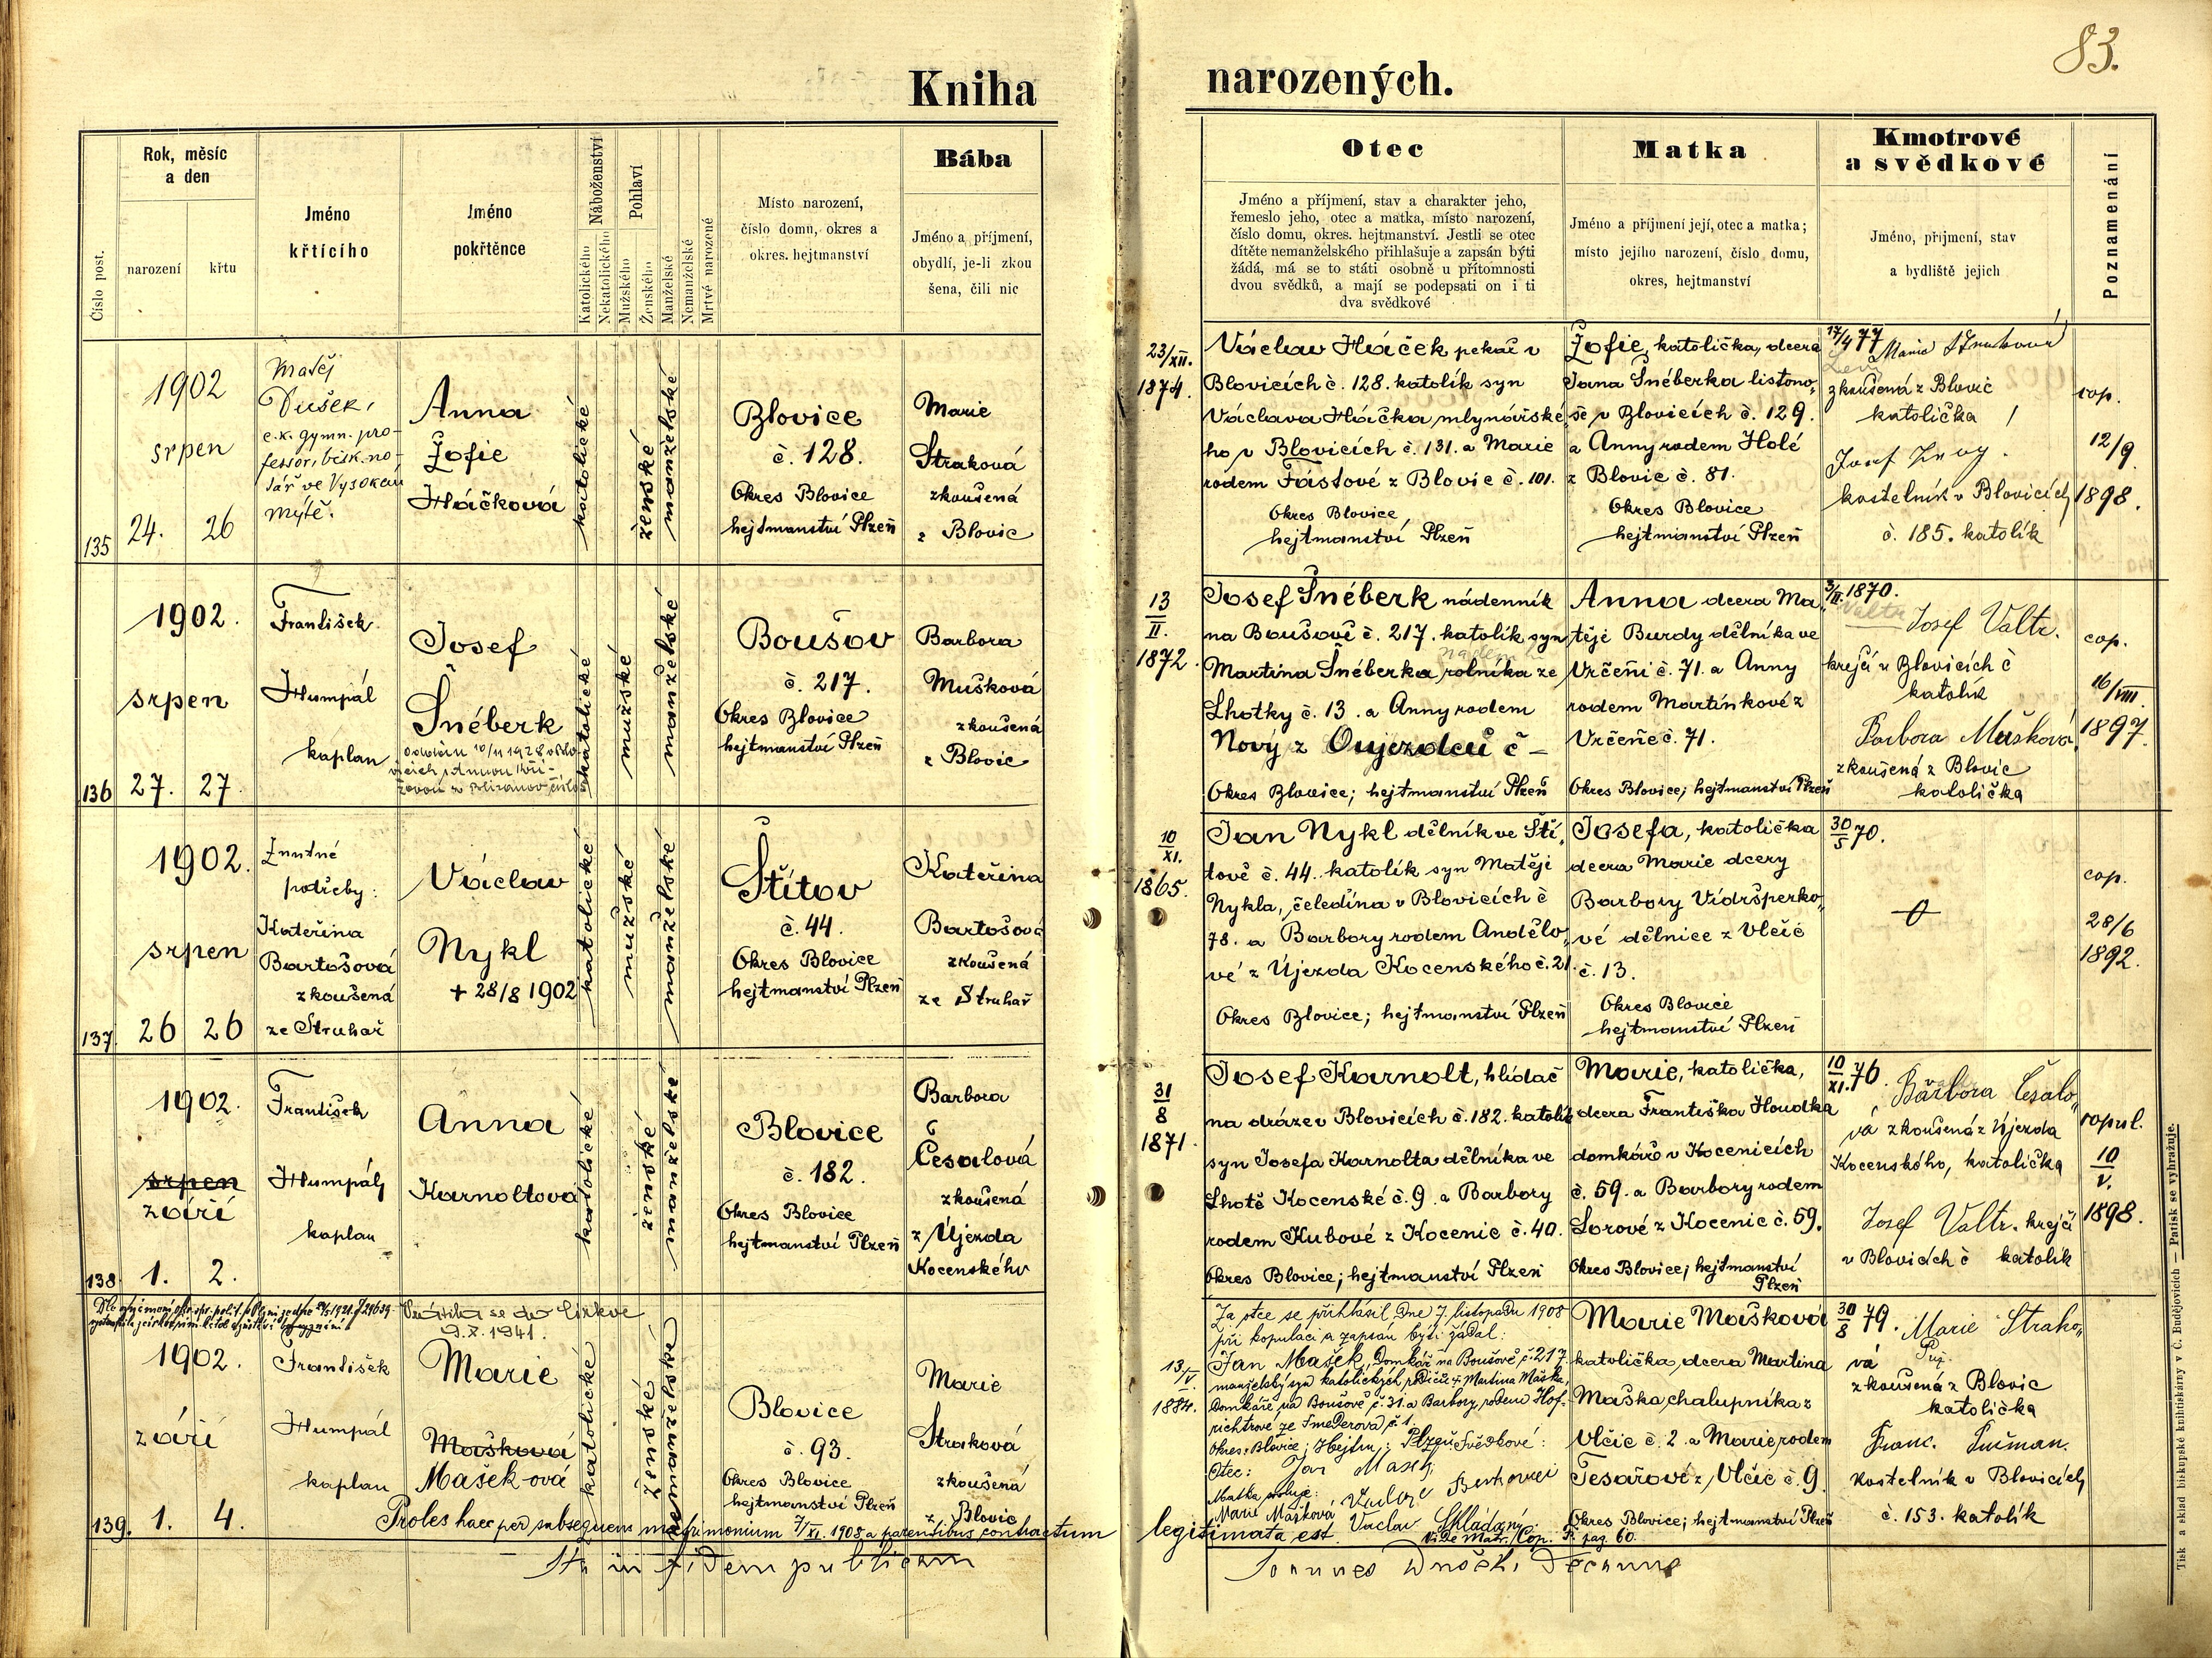 83.
Kniha narozených.
Číslo post.
Rok, měsíc
a den
narození
křtu
Jméno
křtícího
Jméno
pokřtěnce
Náboženství
Katolického
Nekatolického
Pohlaví
Mužského
Ženského
Manželské
Nemanželské
Mrtvě narozené
Místo narození,
číslo domu, okres a
okres. hejtmanství
Bába
Jméno a příjmení,
obydlí, je-li zkou
šena, čili nic
Otec
Jméno a příjmení, stav a charakter jeho,
řemeslo jeho, otec a matka, místo narození,
číslo domu, okres. hejtmanství. Jestli se otec
dítěte nemanželského přihlašuje a zapsán býti
žádá, má se to státi osobně u přítomnosti
dvou svědků, a mají se podepsati on i ti
dva svědkové
Matka
Jméno a příjmení její, otec a matka;
místo jejího narození, číslo domu,
okres, hejtmanství
Kmotrové
a svědkové
Jméno, příjmení, stav
a bydliště jejich
Poznamenání
135
1902
srpen
24. 26
Matěj
Dušek,
c.k. gymn. pro-
fessor, bisk. no-
tář ve Vysokém
mýtě.
Anna
Žofie
Háčková
katolické
ženské
manželské
Blovice
č. 128.
Okres Blovice
hejtmanství Plzeň
Marie
Straková
zkoušená
z Blovic
23/XII.
1874.
Václav Háček pekař v
Blovicích č. 128. katolík syn
Václava Háčka mlynářské
ho v Blovicích č. 131. a Marie
rodem Fástové z Blovic č. 101.
Okres Blovice
hejtmanství Plzeň
Žofie, katolička, dcera
Jana Šnéberka listono-
še v Blovicích č. 129.
a Anny rodem Holé
z Blovic č. 81.
Okres Blovice
hejtmanství Plzeň
17/4 77
Marie Straková
zkoušená z Blovic
katolička
Josef
kostelník v Blovicích
č. 185. katolík
cop.
12/9
1898.
136
1902.
srpen
27. 27
František
Humpál
kaplan
Josef
Šnéberk
katolické
mužské
manželské
Boušov
č. 217.
Okres Blovice
hejtmanství Plzeň
Barbora
Mušková
zkoušená
z Blovic
13
II.
1872.
Josef Šnéberk nádenník
na Boušově č. 217. katolík syn
Martina Šnéberka rolníka ze
Lhotky č. 13. a Anny rodem
Nový z Oujezdců č –
Okres Blovice; hejtmanství Plzeň
Anna dcera Ma-
těje Burdy dělníka ve
Vrčeni č. 71. a Anny
rodem Martínkové z
Vrčeně č. 71.
Okres Blovice; hejtmanství Plzeň
3/II. 1870.
Valtr
Josef Valtr.
krejčí v Blovicích č
katolík
Barbora Mušková,
zkoušená z Blovic
katolička
cop.
16/VIII.
1897.
137
1902.
srpen
26 26
Z nutné
potřeby:
Kateřina
Bartošová
zkoušená
ze Struhař
Václav
Nykl
+ 28/8 1902
katolické
mužské
manželské
Štítov
č. 44.
Okres Blovice
hejtmanství Plzeň
Kateřina
Bartošová
zkoušená
ze Struhař
10
XI.
1865.
Jan Nykl dělník ve Ští-
tově č. 44. katolík syn Matěje
Nykla, čeledína v Blovicích č
78. a Barbory rodem Andělo-
vé z Újezda Kocenského č. 21.
Okres Blovice; hejtmanství Plzeň
Josefa, katolička
dcera Marie dcery
Barbory Vídršperko-
vé dělnice z Vlčic
č. 13.
Okres Blovice
hejtmanství Plzeň
30
5 70.
cop.
28/6
1892.
138
1902.
srpen
září
1. 2.
František
Humpál,
kaplan
Anna
Karnoltová
katolické
ženské
manželské
Blovice
č. 182.
Okres Blovice
hejtmanství Plzeň
Barbora
Česalová
zkoušená
z Újezda
Kocenského
31
8
1871.
Josef Karnolt, hlídač
na dráze v Blovicích č. 182. katolík
syn Josefa Karnolta dělníka ve
Lhotě Kocenské č. 9 a Barbory
rodem Kubové z Kocenic č. 40.
Okres Blovice; hejtmanství Plzeň
Marie, katolička,
dcera Františka Houdka
domkáře v Kocenicích
č. 59. a Barbory rodem
Lorové z Kocenic č. 59.
Okres Blovice; hejtmanství
Plzeň
10
XI. 76.
Barbora Česalo-
vá zkoušená z Újezda
Kocenského, katolička
Josef Valtr. krejčí
v Blovicích č katolík
copul.
10
V.
1898.
Vrátila se do církve
9. X. 1941.
139.
1902.
září
1. 4.
František
Humpál
kaplan
Marie
Mašková
Mašeková
katolické
ženské
nemanželské
Blovice
č. 93.
Okres Blovice
hejtmanství Plzeň
Marie
Straková
zkoušená
z Blovic
13/V
1884.
Za otce se přihlásil dne 7. listopadu 1908
při kopulaci a zapsán býti žádal:
Jan Mašek, domkář na Boušově č. 217.
manželský syn katolických rodičů + Martina Maška,
domkáře na Boušově č. 31. a Barbory, rodem Hof-
richtrové ze Smederova č. 1.
Okres: Blovice; Hejtm.: Plzeň Svědkové:
Otec: Jan Mašek
Matka
Marie Mašková
Vaclav Skládaný
Marie Mašková
katolička, dcera Martina
Maška, chalupníka z
Vlčic č. 2. a Marie, rodem
Tesařové z Vlčic č. 9.
Okres Blovice; hejtmanství Plzeň
30
8 79.
Marie Strako-
vá
zkoušená z Blovic
katolička
Franc.
kostelník v Blovicích
č. 153. katolík
Proles haec per subsequens matrimonium 7/XI. 1908 a parentibus contractum legitimata est.
Vide Matr. Cop. pag. 60.
Ita in fidem publicam
Tisk a sklad biskupské knihtiskárny v Č. Budějovicích — Patisk se vyhražuje.